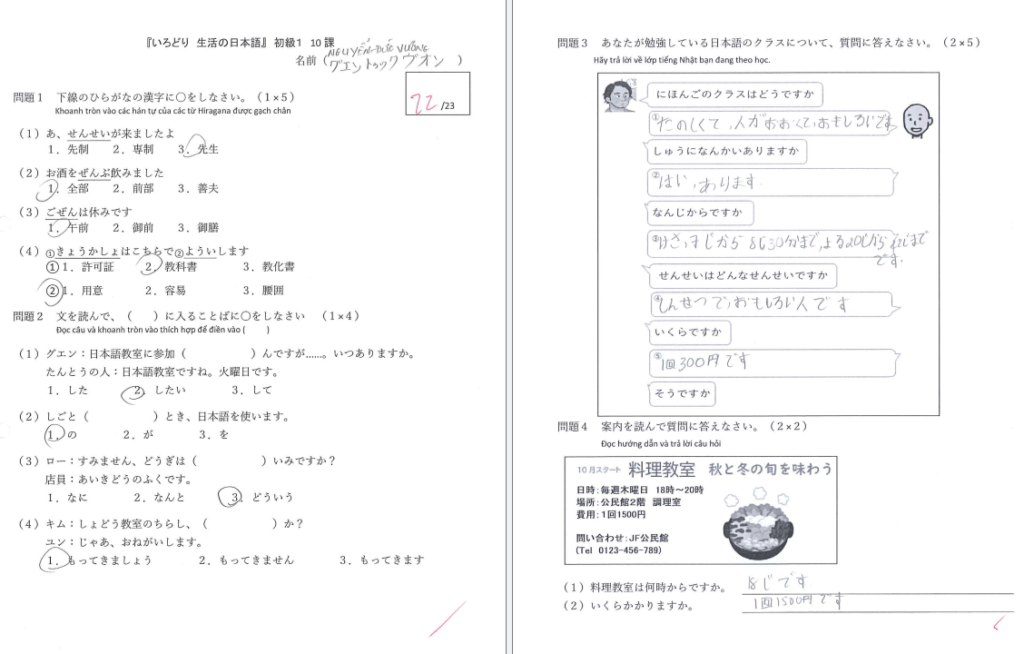 『いろどり 生活の日本語』 初級1 10課
NGUYEN DUC VUONG
名前(グエン トゥック ヴオン)
22 /23
問題1 下線のひらがなの漢字に〇をしなさい。(1×5)
Khoanh tròn vào các hán tự của các từ Hiragana được gạch chân
(1)あ、せんせいが来ましたよ
1．先制 2．専制 3．先生
(2)お酒をぜんぶ飲みました
1．全部 2．前部 3．善夫
(3)ごぜんは休みです
1．午前 2．御前 3．御膳
(4)①きょうかしょはこちらで②よういします
①1．許可証 2．教科書 3．教化書
②1．用意 2．容易 3．腰囲
問題2 文を読んで、( )に入ることばに〇をしなさい (1×4)
Đọc câu và khoanh tròn vào thích hợp để điền vào ( )
(1)グエン：日本語教室に参加( )んですが……。いつありますか。
たんとうの人：日本語教室ですね。火曜日です。
1．した 2．したい 3．して
(2)しごと( )とき、日本語を使います。
1．の 2．が 3．を
(3)ロー：すみません、どうぎは( )いみですか？
店員：あいきどうのふくです。
1．なに 2．なんと 3．どういう
(4)キム：しょどう教室のちらし、( )か？
ユン：じゃあ、おねがいします。
1．もってきましょう 2．もってきません 3．もってきます
問題3 あなたが勉強している日本語のクラスについて、質問に答えなさい。(2×5)
Hãy trả lời về lớp tiếng Nhật bạn đang theo học.
にほんごのクラスはどうですか
①たのしくて、人がおおくて、おもしろいです
しゅうになんかいありますか
②はい、あります
なんじからですか
③けさ、7じから8じ30分まで、よる20じから まで
です。
せんせいはどんなせんせいですか
④しんせつで、おもしろい人です
いくらですか
⑤1回300円です
そうですか
問題4 案内を読んで質問に答えなさい。(2×2)
Đọc hướng dẫn và trả lời câu hỏi
10月スタート 料理教室 秋と冬の旬を味わう
日時：毎週木曜日 18時～20時
場所：公民館2階 調理室
費用：1回1500円
問い合わせ：JF公民館
(Tel 0123-456-789)
(1)料理教室は何時からですか。 8じです
(2)いくらかかりますか。 1回1500円です